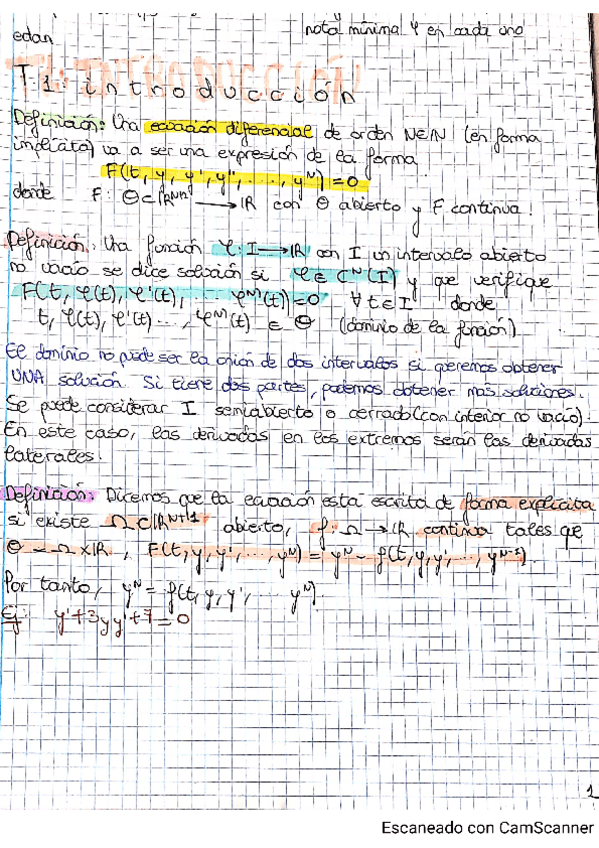 nota mínima 4 en cada uno
edan
T.1: introducción
Definición: Una ecuación diferencial de orden N∈ℕ (en forma
implícita) va a ser una expresión de la forma
F(t, y, y', y'', ...., y^N) = 0
donde F: Θ⊂ℝ^{N+2} → ℝ con Θ abierto y F continua.
Definición: Una función φ: I → ℝ con I un intervalo abierto
no vacío se dice solución si φ ∈ C^N(I) y que verifique
F(t, φ(t), φ'(t), ... φ^{N)}(t)) = 0 ∀t∈I donde
t, φ(t), φ'(t) ..., φ^{N)}(t) ∈ Θ (dominio de la función).
El dominio no puede ser la unión de dos intervalos si queremos obtener
UNA solución. Si tiene dos partes, podemos obtener más soluciones.
Se puede considerar I semiabierto o cerrado (con interior no vacío).
En este caso, las derivadas en los extremos serán las derivadas
laterales.
Definición: Dicemos que la ecuación está escrita de forma explícita
si existe Ω⊂ℝ^{N+1} abierto, f: Ω → ℝ continua tales que
Θ = Ω×ℝ, F(t, y, y', ..., y^N) = y^N - f(t, y, y', ..., y^{N-1}).
Por tanto, y^N = f(t, y, y', ... y^N)
Ej: y'+3yy'+7=0
1
Escaneado con CamScanner